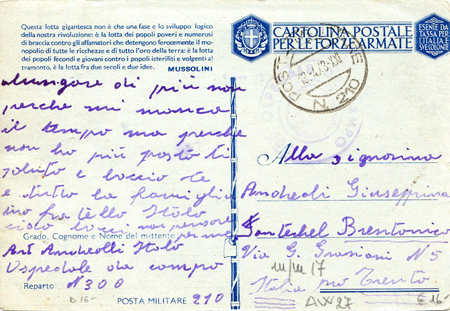 Questa lotta gigantesca non è che una fase e lo sviluppo logico
della nostra rivoluzione: è la lotta dei popoli poveri e numerosi
di braccia contro gli affamatori che detengono ferocemente il mono-
polio di tutte le ricchezze e di tutto l'oro della terra: è la lotta dei
popoli fecondi e giovani contro i popoli isteriliti e volgenti al
tramonto, è la lotta fra due secoli e due idee.
MUSSOLINI
CARTOLINA POSTALE
PER LE FORZE ARMATE
ESENTE DA
TASSA PER
L'ITALIA E
SVE COLONIE
POST
N. 210
alungare di più non
perche mi manca
il tempo ma perche
non ho più posto ti
saluto e baccio te
e tutto la famiglia
tuo fratello Italo
ciao
Grado, Cognome e Nome del mittente
Art Andreolli Italo
Ospedale da campo
Reparto N 300
POSTA MILITARE 210
Alla signorina
Andreoli Giuseppina
Brentonico
Via G. N 5
Italia Trento
D 16-
€ 16-